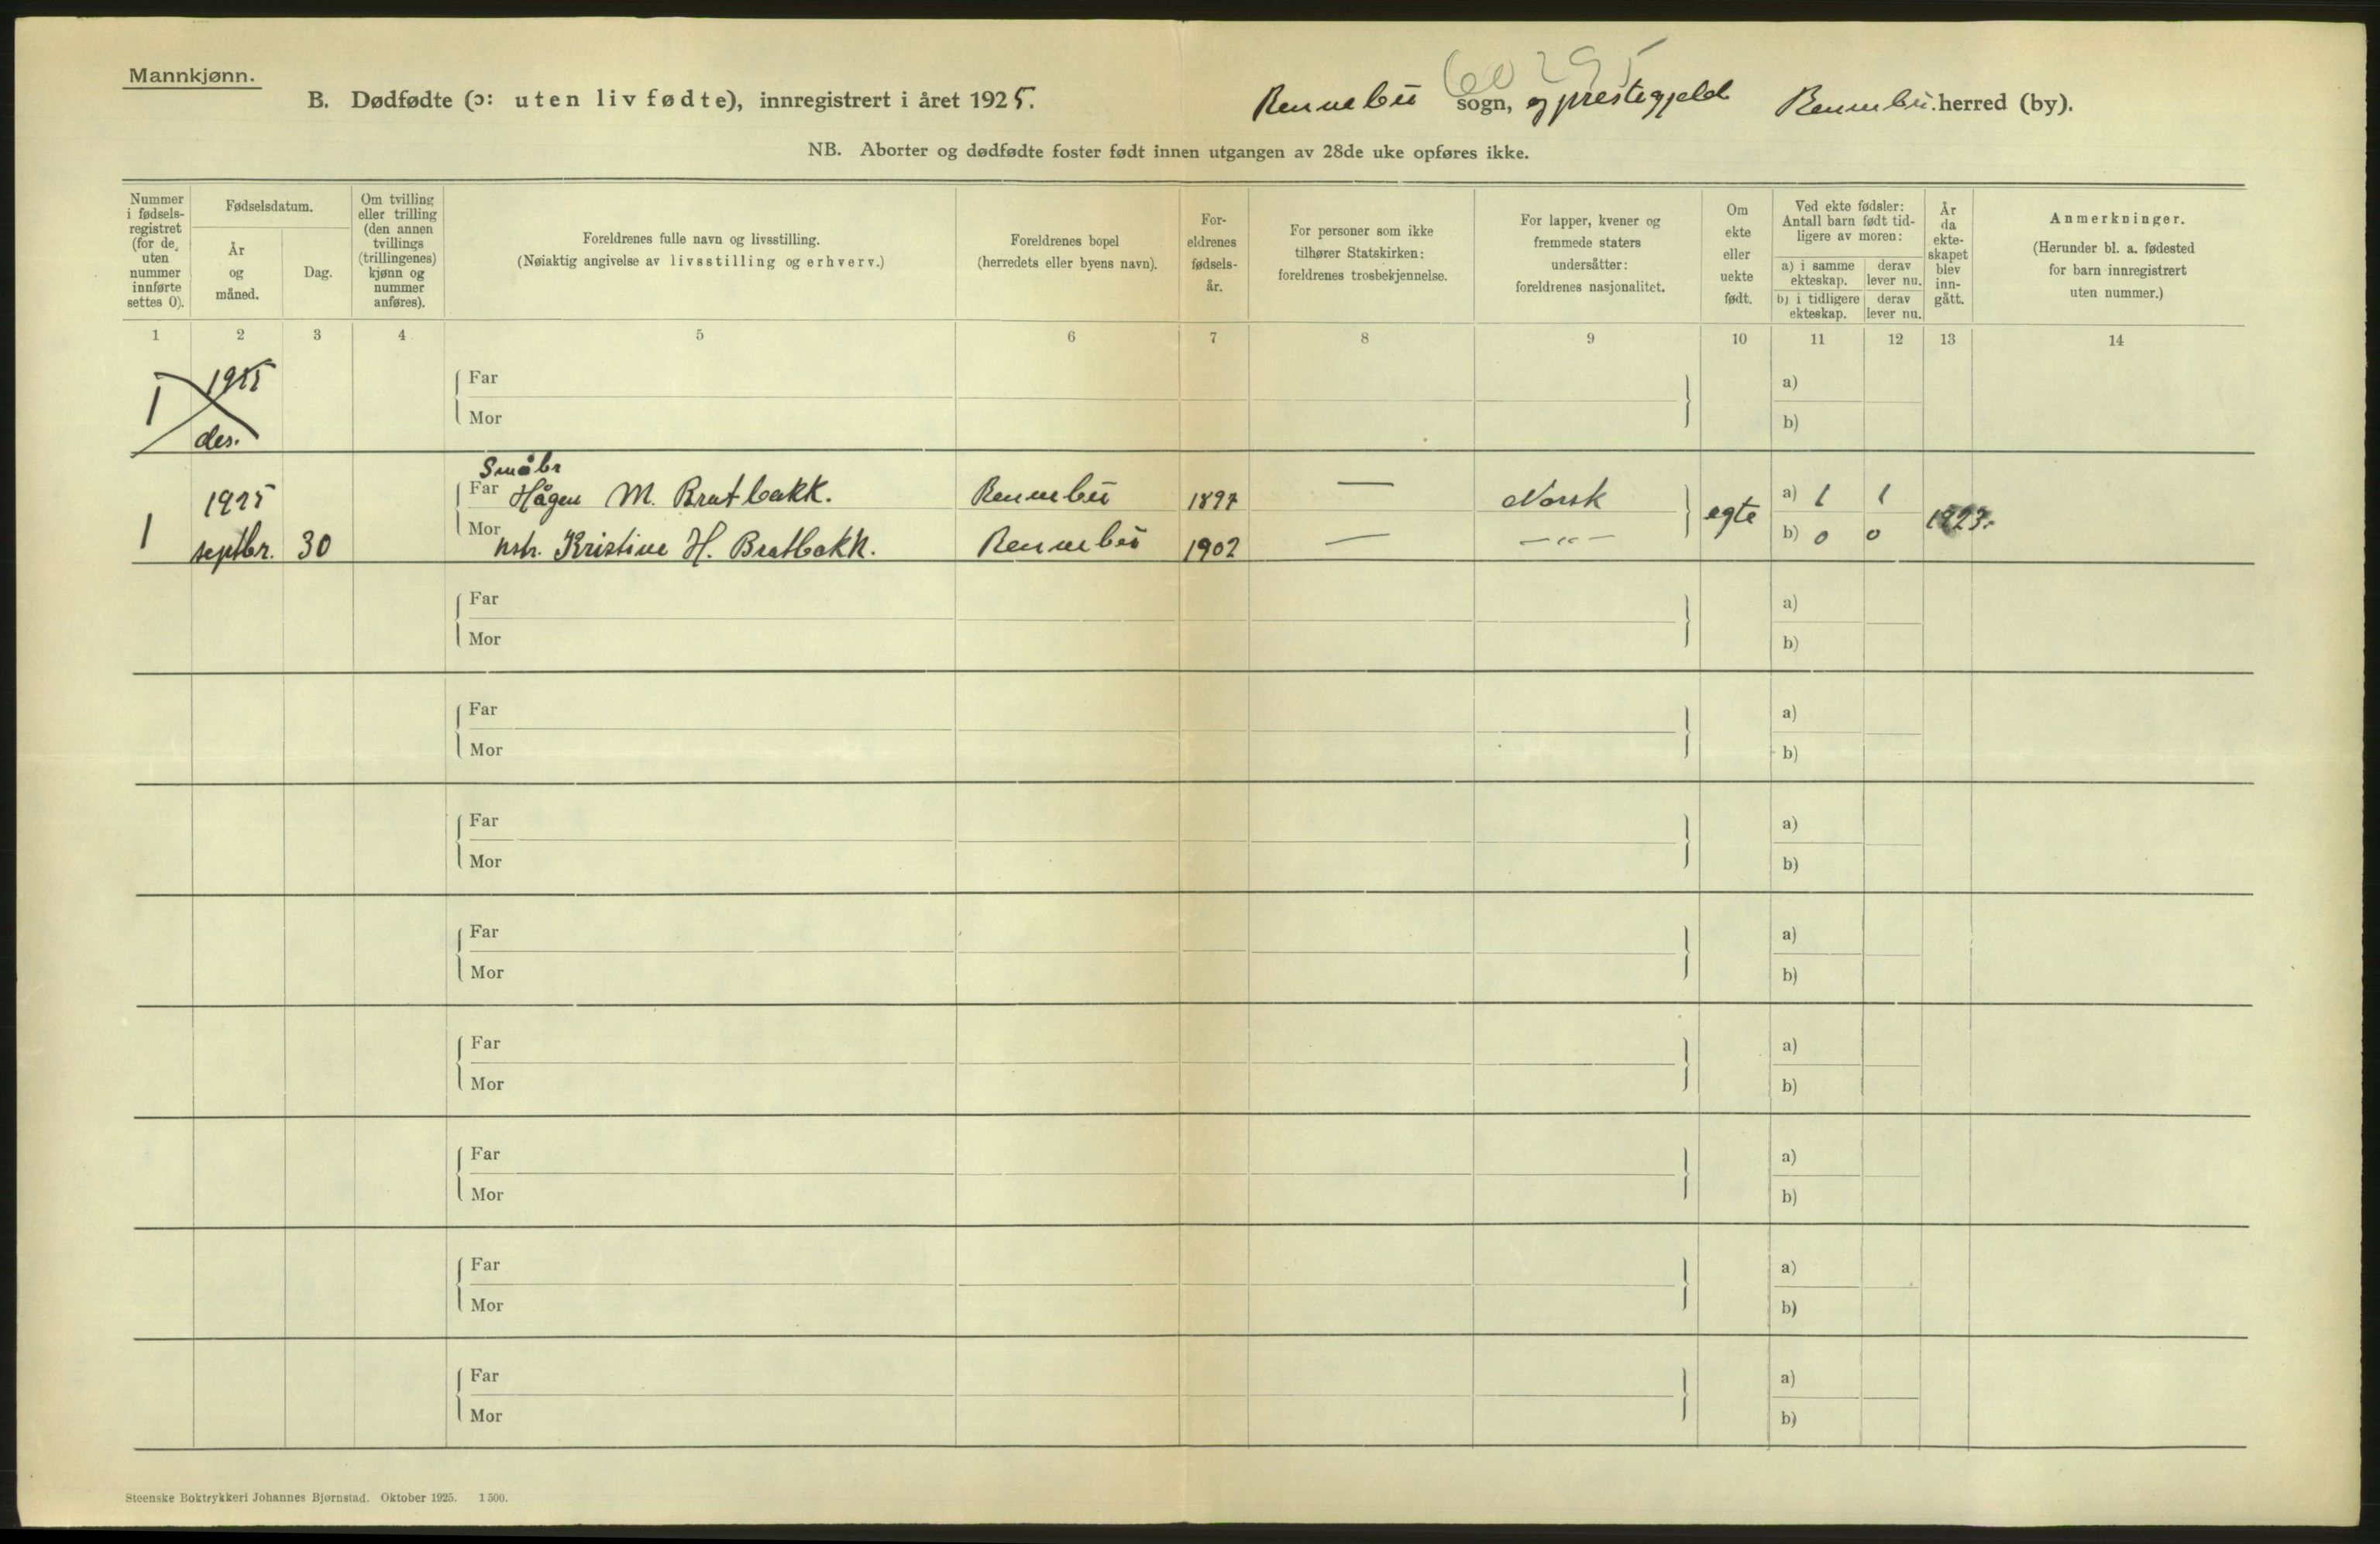 Mannkjønn.
B. Dødfødte (ɔ: uten liv fødte), innregistrert i året 1925. Rennebu sogn, og prestegjeld Rennebu herred (by).
60 295
NB. Aborter og dødfødte foster født innen utgangen av 28de uke opføres ikke.
Nummer i fødsels-registret (for de uten nummer innførte settes 0).
Fødselsdatum.
År og måned.
Dag.
Om tvilling eller trilling (den annen tvillings (trillingenes) kjønn og nummer anføres).
Foreldrenes fulle navn og livsstilling.
(Nøiaktig angivelse av livsstilling og erhverv.)
Foreldrenes bopel
(herredets eller byens navn).
For-eldrenes fødsels-år.
For personer som ikke tilhører Statskirken: foreldrenes trosbekjennelse.
For lapper, kvener og fremmede staters undersåtter: foreldrenes nasjonalitet.
Om ekte eller uekte født.
Ved ekte fødsler: Antall barn født tid-ligere av moren:
a) i samme ekteskap.
derav lever nu.
b) i tidligere ekteskap.
derav lever nu.
År da ekte-skapet blev inn-gått.
Anmerkninger.
(Herunder bl. a. fødested for barn innregistrert uten nummer.)
1 2 3 4 5 6 7 8 9 10 11 12 13 14
1925
1
des.
Far a)
Mor b)
Småbr
1925 Far Hågen M. Bratbakk. Rennebu 1897 — Norsk a) 1 1
1 egte 1923.
septbr. 30 Mor hstr. Kristine H. Bratbakk. Rennebu 1902 — —"— b) 0 0
Far a)
Mor b)
Far a)
Mor b)
Far a)
Mor b)
Far a)
Mor b)
Far a)
Mor b)
Far a)
Mor b)
Far a)
Mor b)
Far a)
Mor b)
Steenske Boktrykkeri Johannes Bjørnstad. Oktober 1925. 1500.